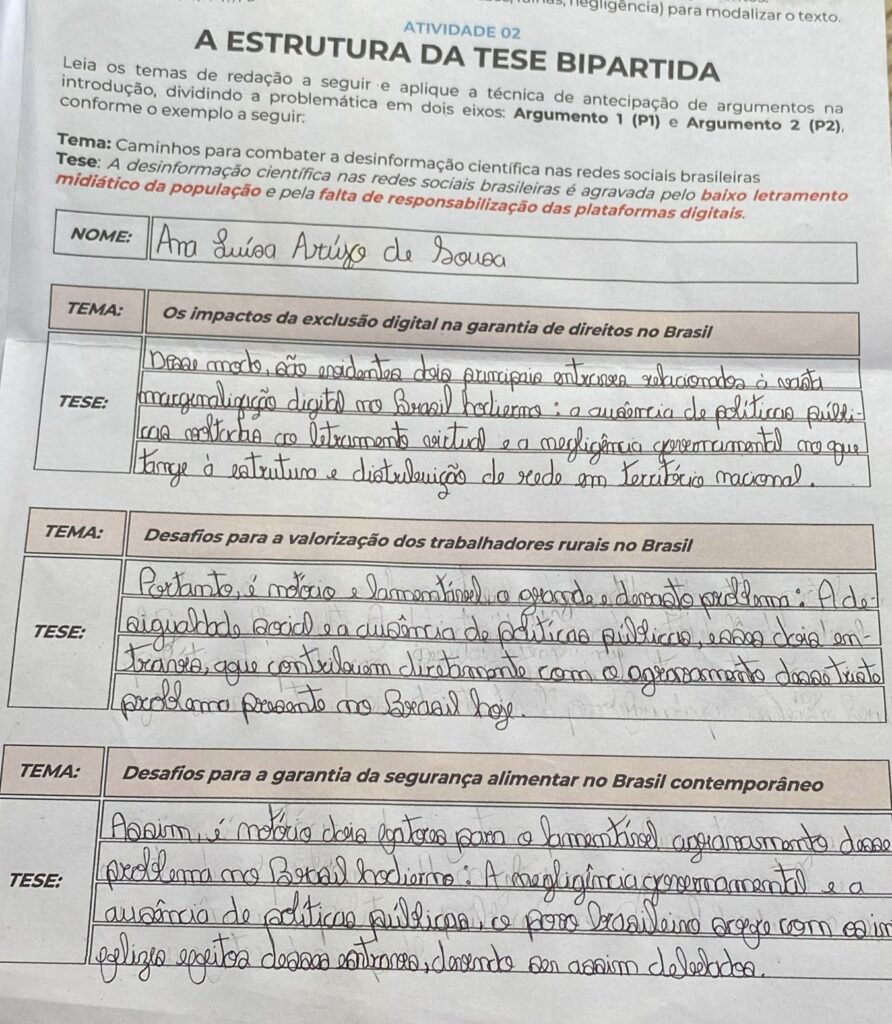 negligência) para modalizar o texto.
ATIVIDADE 02
A ESTRUTURA DA TESE BIPARTIDA
Leia os temas de redação a seguir e aplique a técnica de antecipação de argumentos na
introdução, dividindo a problemática em dois eixos: Argumento 1 (P1) e Argumento 2 (P2),
conforme o exemplo a seguir:
Tema: Caminhos para combater a desinformação científica nas redes sociais brasileiras
Tese: A desinformação científica nas redes sociais brasileiras é agravada pelo baixo letramento
midiático da população e pela falta de responsabilização das plataformas digitais.
NOME: Ana Luísa de Sousa
TEMA: Os impactos da exclusão digital na garantia de direitos no Brasil
TESE:
Desse modo, são evidentes dois principais entraves relacionados à vasta
marginalização digital no Brasil hodierno: a ausência de políticas públi-
cas voltadas ao letramento virtual e a negligência governamental no que
tange à estrutura e distribuição de rede em território nacional.
TEMA: Desafios para a valorização dos trabalhadores rurais no Brasil
TESE:
Portanto, é notório e lamentável, o grande e problema: A de-
sigualdade social e a ausência de políticas públicas, esses dois en-
traves, que contribuem diretamente com o agravamento desse triste
problema presente no Brasil hoje.
TEMA: Desafios para a garantia da segurança alimentar no Brasil contemporâneo
TESE:
Assim, é notório dois fatores para o lamentável agravamento desse
problema no Brasil hodierno: A negligência governamental e a
ausência de políticas públicas, o povo brasileiro arca com os in
felizes efeitos desses entraves, devendo ser assim deletados.